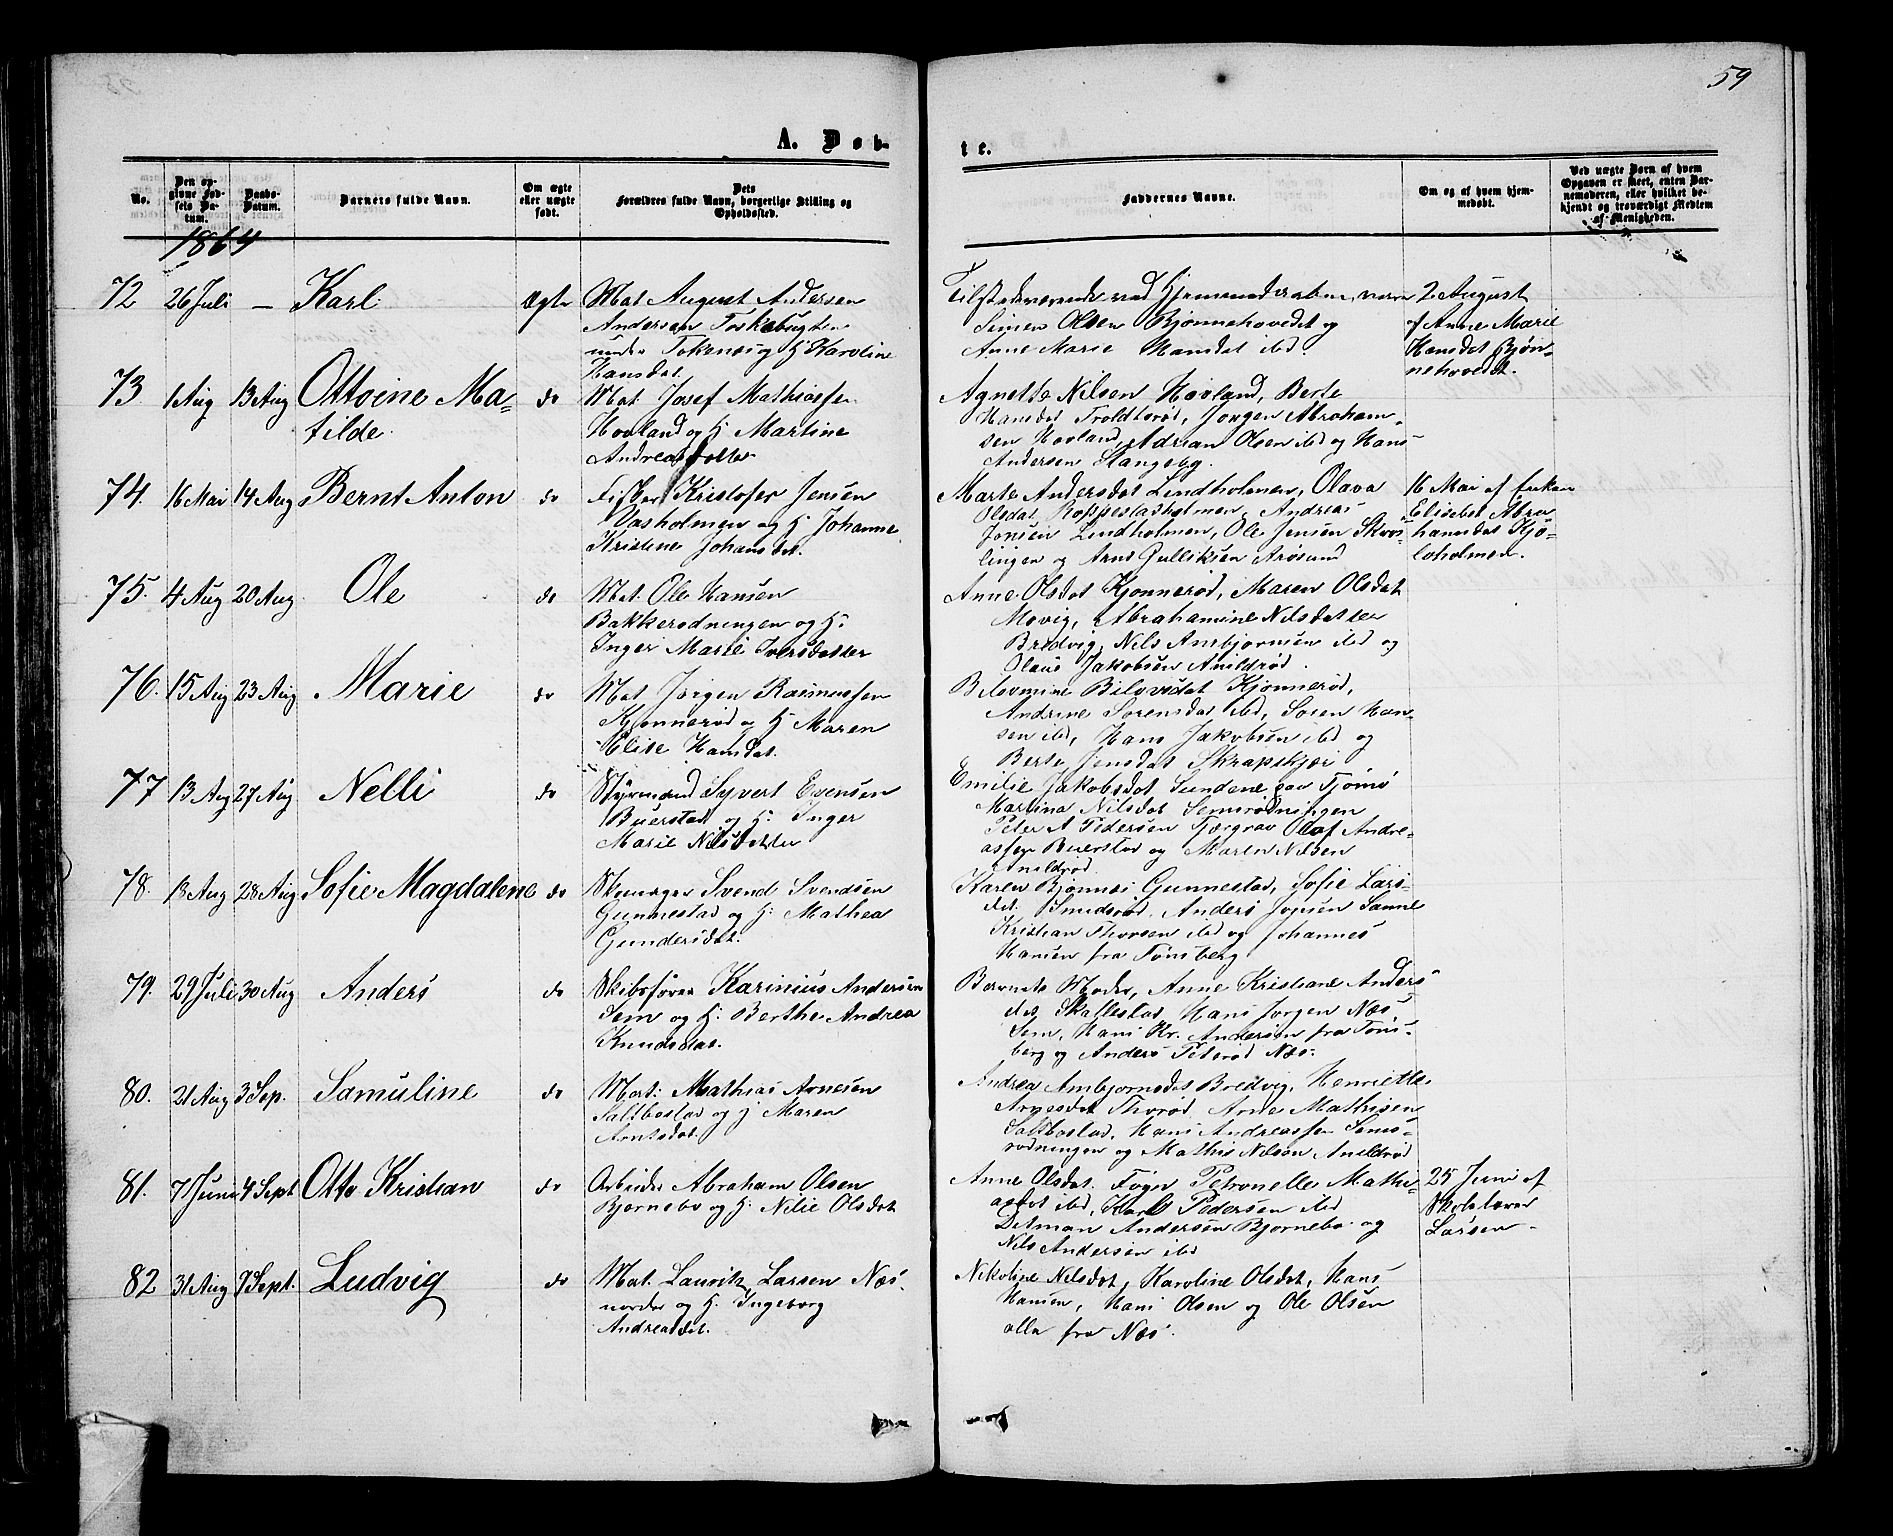 59
A. Døb-
te.
No.
Den opgivne Fødsels Datum.
Daabs-Datum.
Barnets fulde Navn.
Om ægte eller uægte født.
Dets Forældres fulde Navn, borgerlige Stilling og Opholdssted.
Faddernes Navne.
Om og af hvem hjemmedøbt.
Ved uægte Børn af hvem Opgaven er skeet, enten Barnemoderen, eller hvilket bekjendt og troværdigt Medlem af Menigheden.
1864
72 26 Juli — Karl ægte Mat August Andersen
Andersen Torkebugten
under Tokenæs og H. Karoline
Hansdat.
Tilstedeværende ved Hjemmedaaben, vare
Simen Olsen Bjønnehovedet og
Anne Marie Hansdat ibd.
2 August
af Anne Marie
Hansdat Bjøn-
nehovedet.
73. 1 Aug 13 Aug Ottoine Ma-
tilde do Mat. Josef Mathiassen
Hovland og H. Martine
Andreasdatter
Agnette Nilsen Hovland, Berte
Hansdat Troldterød, Jørgen Abraham-
sen Hovland, Adrian Olsen ibd og Hans
Andersen Stangeby.
74. 16 Mai 14 Aug Bernt Anton do Fisker Kristofer Jensen
Vasholmen og H. Johanne
Kristine Johansdat.
Marte Andersdat Lindholmen, Olava
Olsdat Koppestadholmen, Andreas
Jonsen Lindholmen, Ole Jensen Skrøs-
lingen og Arnt Gulliksen Arøsund
16 Mai af Enken
Elisebet Abra
hamsdat Kjø-
loholmen.
75. 4 Aug 20 Aug Ole do Mat. Ole Hansen
Bakkerødningen og H.
Inger Marie Iversdatter
Anne Olsdat Kjønnerød, Maren Olsdat
Movig, Abrahamine Nilsdatter
Bredvig, Nils Ambjørnsen ibd og
Olaus Jakobsen Anildrød.
76. 15 Aug 23 Aug Marie do Mat Jørgen Rasmussen
Kjønnerød og H. Maren
Elise Hansdat.
Belovmine Belovsdat Kjønnerød,
Andrine Sørensdat ibd, Søren Han-
sen ibd, Hans Jakobsen ibd og
Berte Jensdat Skrapskjær
77 13 Aug 27 Aug Nelli do Styrmand Syvert Evensen
Buerstad og H. Inger
Marie Nilsdatter
Emilie Jakobsdat Sundene paa Tjømø
Martina Nilsdat Semsrødningen
Peter A Pedersen Tjærgrav Olaf Andre-
assen Buerstad og Maren Nilsen
Anildrød.
78. 13 Aug 28 Aug Sofie Magdalene do Skomager Svend Svendsen
Gunnestad og H. Mathea
Gundersdat.
Karen Bjønnes Gunnestad, Sofie Lars-
dat. Smidsrød, Anders Jonsen Sanne
Kristian Thorsen ibd og Johannes
Hansen fra Tønsberg
79. 29 Juli 30 Aug Anders do Skibsfører Karinius Andersen
Sem og H. Berthe Andrea
Knudsdat.
Barnets Moder, Anne Kristiane Anders
dat Skallestad, Hans Jørgen Næs
Sem, Hans Kr. Andersen fra Tøns-
berg og Anders Peterød Næs.
80. 21 Aug 3 Sep. Samuline do Mat. Mathias Arnesen
Saltbostad og H Maren
Arntsdat.
Andrea Ambjørnsdat Bredvig, Henriette
Arnesdat Thorød, Arne Mathisen
Saltbostad, Hans Andreassen Sems-
rødningen og Mathis Nilsen Anildrød
81. 7 Juni 4 Sept Otto Kristian do Arbeider Abraham Olsen
Bjørnebo og H. Nilie Olsdat
Anne Olsdat. Føgn Petronelle Mathi-
asdat ibd, Karl Pedersen ibd
Detman Andersen Bjørnebo og
Nils Andersen ibd
25 Juni af
Skolelærer
Larsen
82 31 Aug 9 Sept. Ludvig do Mat. Lauritz Larsen Næs
nordre og H. Ingeborg
Andreasdat.
Nikoline Nilsdat, Karoline Olsdat, Hans
Hansen, Hans Olsen og Ole Olsen
alle fra Næs.